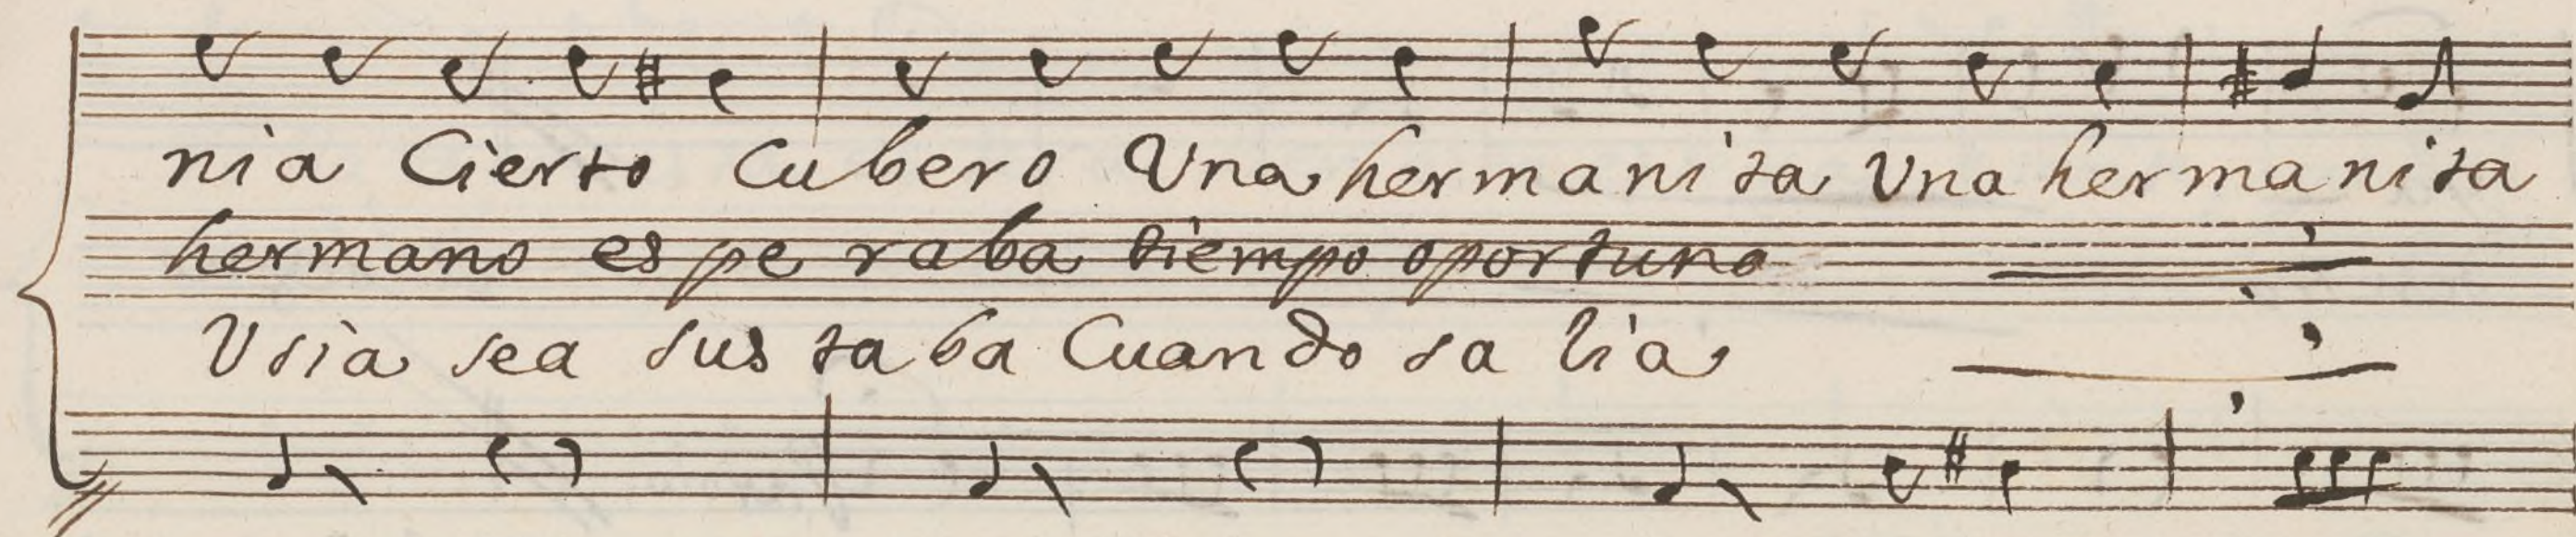 nia Cierto Cubero Una hermanita Una hermanita
hermano es pe raba tiempo oportuno
Usia sea sus ta ba Cuando sa lia